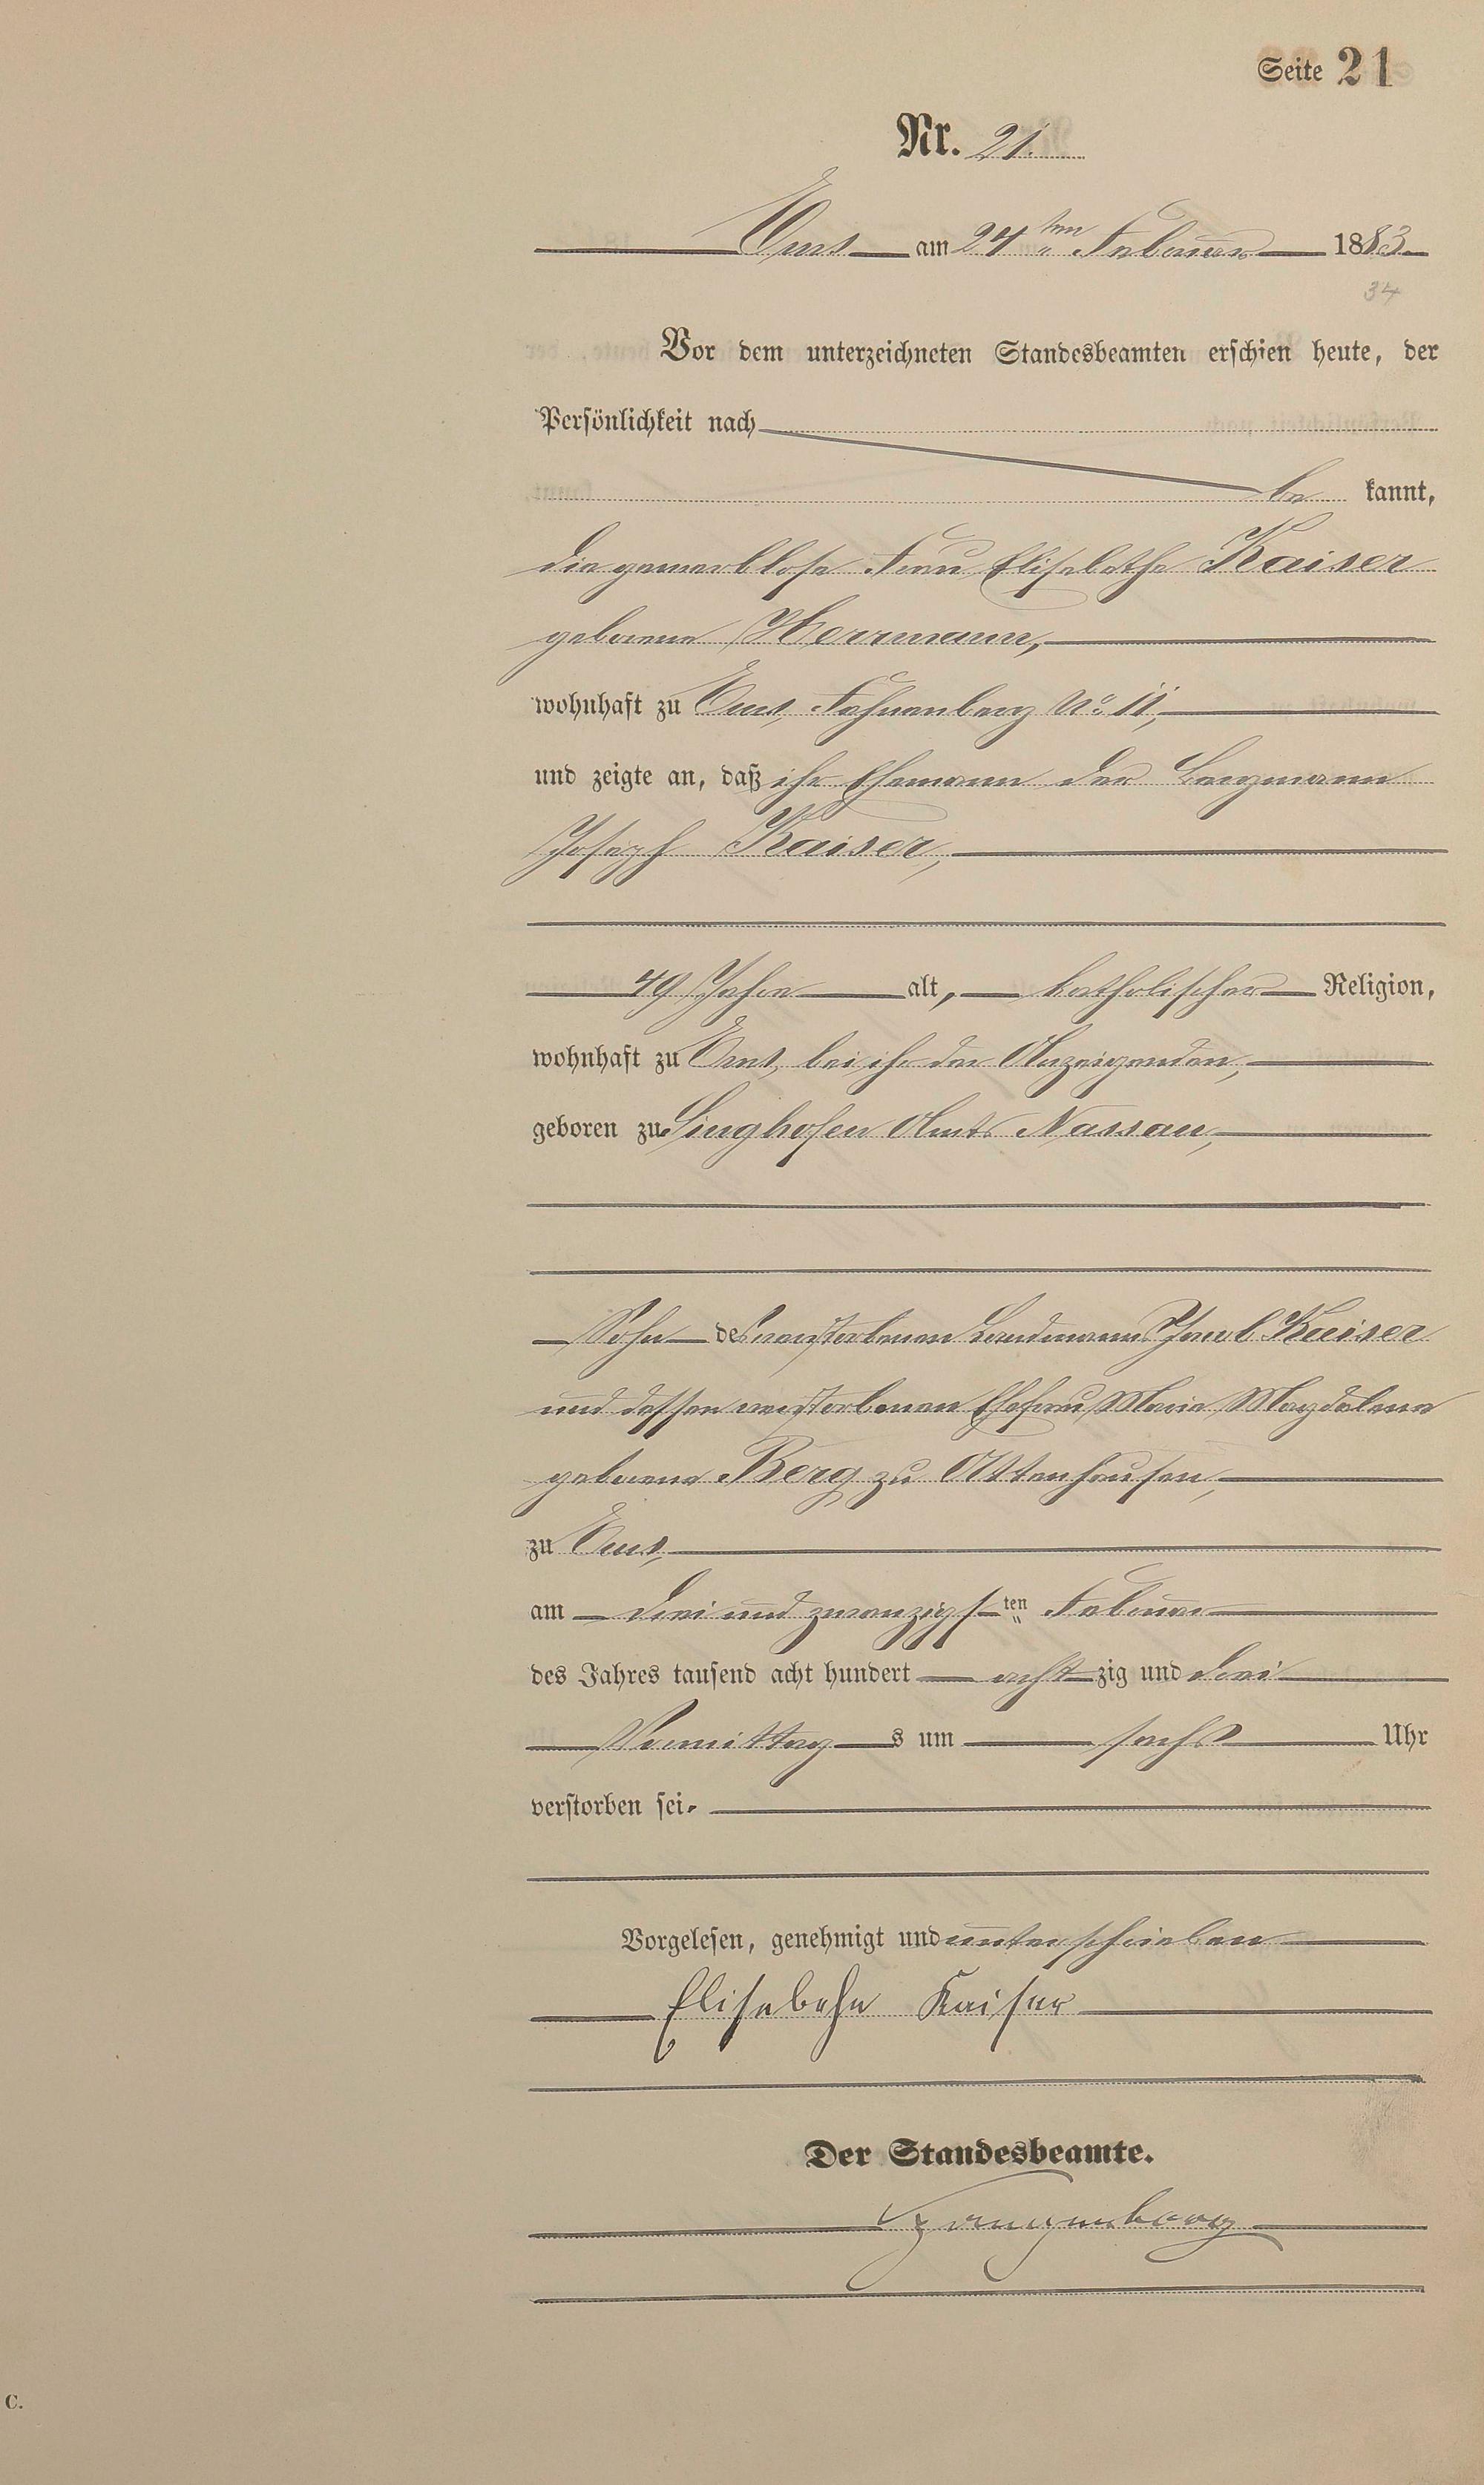 Seite 21
Nr. 21.
Ems am 24ten Februar 1883
34
Vor dem unterzeichneten Standesbeamten erschien heute, der
Persönlichkeit nach
be kannt,
die gewerblose Frau Elisabethe Kaiser
geborene Herrmann,
wohnhaft zu Ems, Fahnenberg No 11,
und zeigte an, daß ihr Ehemann der Bergmann
Joseph Kaiser,
49 Jahre alt, katholischer Religion,
wohnhaft zu Ems, bei ihr der Anzeigenden,
geboren zu Singhofen Amts Nassau,
Sohn des verstorbenen Landmanns Jacob Kaiser
und dessen verstorbenen Ehefrau Maria Magdalena
geborene Berg zu Attenhausen,
zu Ems,
am drei und zwanzigsten Februar
des Jahres tausend acht hundert acht zig und drei
Vormittag s um sechs Uhr
verstorben sei.
Vorgelesen, genehmigt und unterschrieben
Elisabehe Kaiser
Der Standesbeamte.
C.